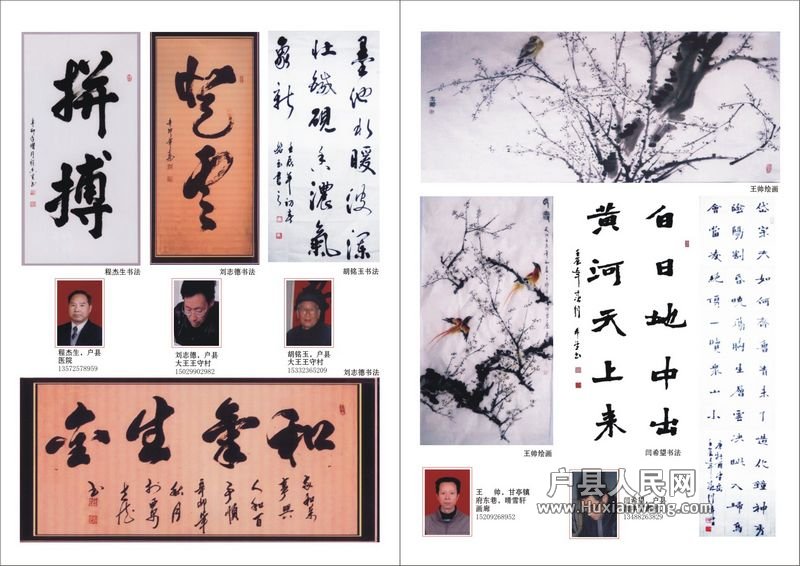 拼搏
程杰生书法
刘志德书法
墨池水暖波澜
壮铁砚冬浓气
象新
壬辰年初春
铭玉书
胡铭玉书法
程杰生、户县
医院
13572578959
刘志德、户县
大王王守村
15029902982
胡铭玉、户县
大王王守村
15332365209
刘志德书法
和气生金
家和万
事兴
人和百
事顺
辛卯年
秋月
王帅绘画
王帅绘画
白日地中出
黄河天上来
闫希望书法
岱宗夫如何齐鲁青未了造化钟神秀
阴阳割昏晓荡胸生层云决眦入归鸟
会当凌绝顶一览众山小
王　帅、甘亭镇
府东巷，晴雪轩
画廊
15209268952
闫希望、户县
13488263829
户县人民网
www.Huxianwang.com